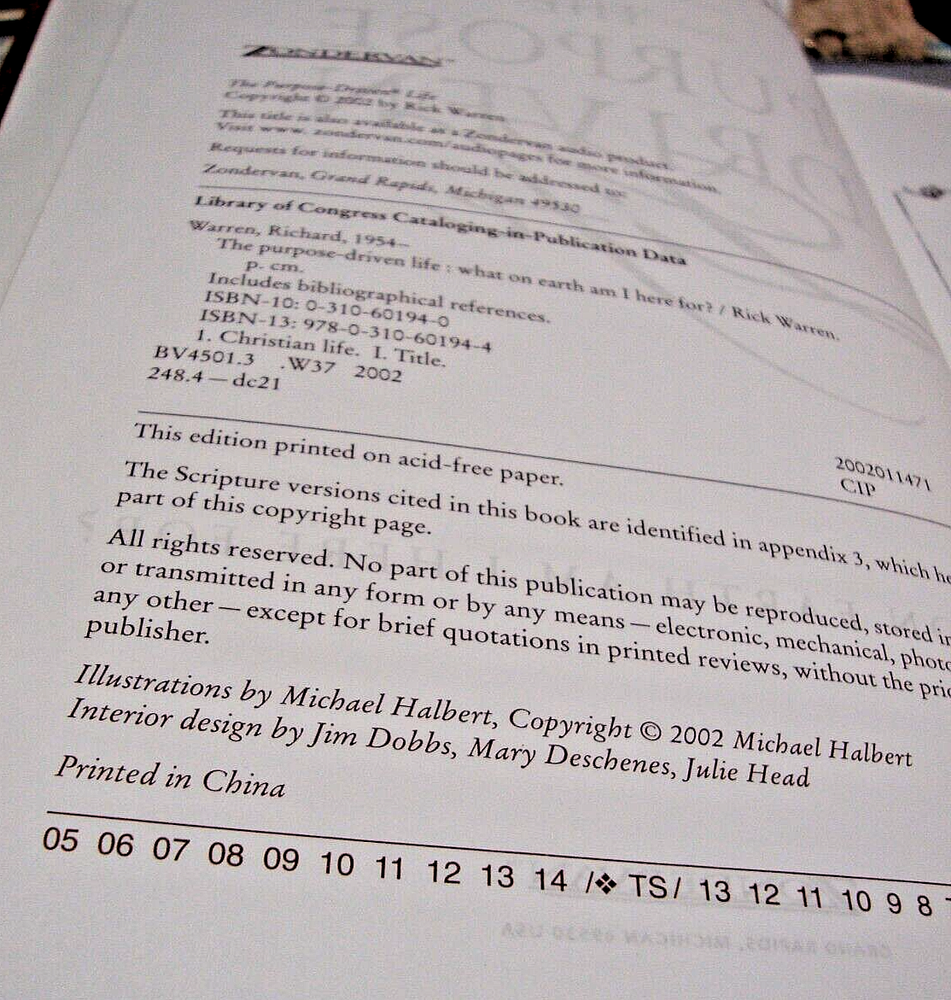 ZONDERVAN™
The Purpose-Driven® Life
Copyright © 2002 by Rick Warren
This title is also available as a Zondervan audio product.
Visit www. zondervan.com/audiopages for more information.
Requests for information should be addressed to:
Zondervan, Grand Rapids, Michigan 49530
Library of Congress Cataloging-in-Publication Data
Warren, Richard, 1954–
The purpose-driven life : what on earth am I here for? / Rick Warren.
p. cm.
Includes bibliographical references.
ISBN-10: 0-310-60194-0
ISBN-13: 978-0-310-60194-4
1. Christian life. I. Title.
BV4501.3 .W37 2002
248.4 — dc21
2002011471
CIP
This edition printed on acid-free paper.
The Scripture versions cited in this book are identified in appendix 3, which he
part of this copyright page.
All rights reserved. No part of this publication may be reproduced, stored in
or transmitted in any form or by any means — electronic, mechanical, photo
any other — except for brief quotations in printed reviews, without the prio
publisher.
Illustrations by Michael Halbert, Copyright © 2002 Michael Halbert
Interior design by Jim Dobbs, Mary Deschenes, Julie Head
Printed in China
05 06 07 08 09 10 11 12 13 14 /❖ TS/ 13 12 11 10 9 8